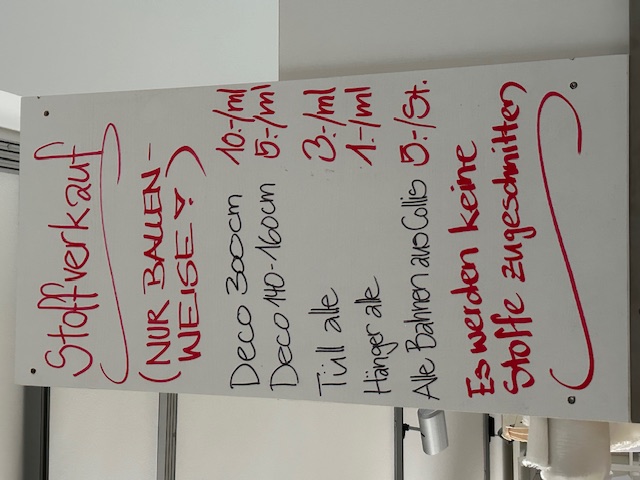 Stoffverkauf
(NUR BALLEN-
WEISE!)
Deco 300cm 10.-/ml
Deco 140-160cm 5.-/ml
Tüll alle 3.-/ml
Hänger alle 1.-/ml
Alle Bahnen aus Collis 5.-/St.
Es werden keine
Stoffe zugeschnitten